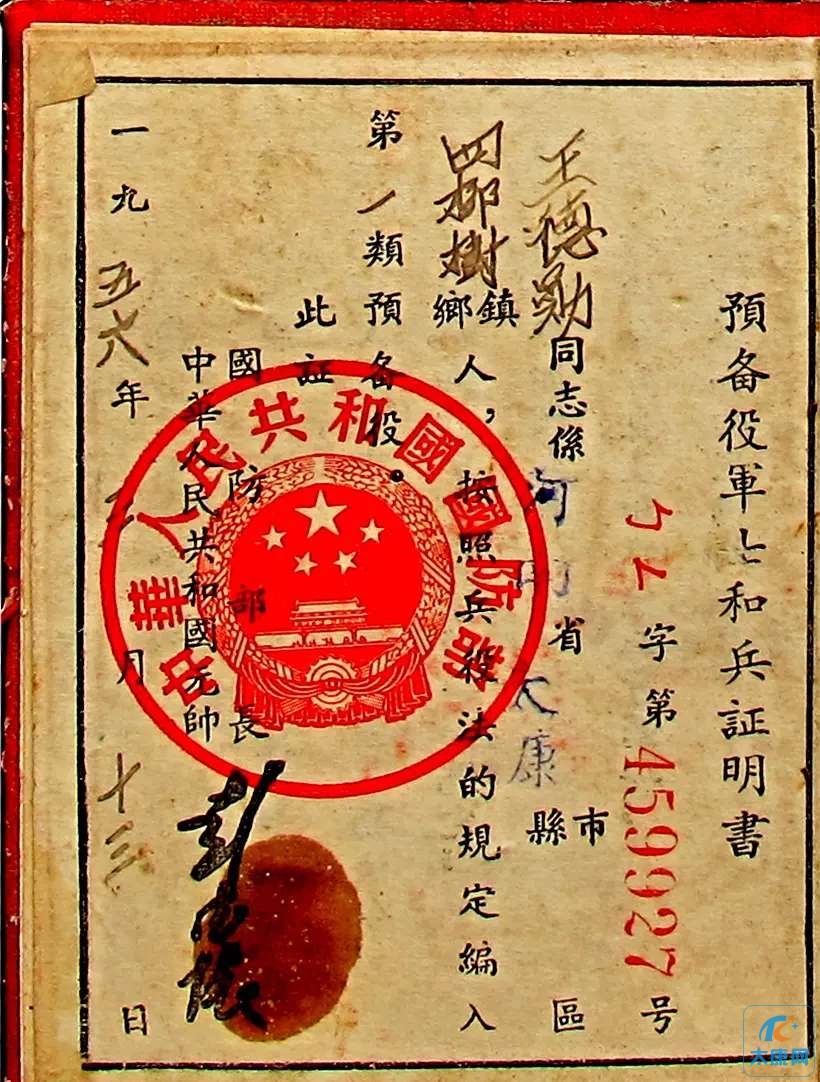 預备役軍士和兵証明書
字第459927号
王德勋同志係河南省太康市縣區
四柳樹鎮鄉人，按照兵役法的規定編入
第一類預备役。
此証
國防部長
中華人民共和國元帥
彭德懷
一九五六年 月十三日
中華人民共和國國防部
太康网